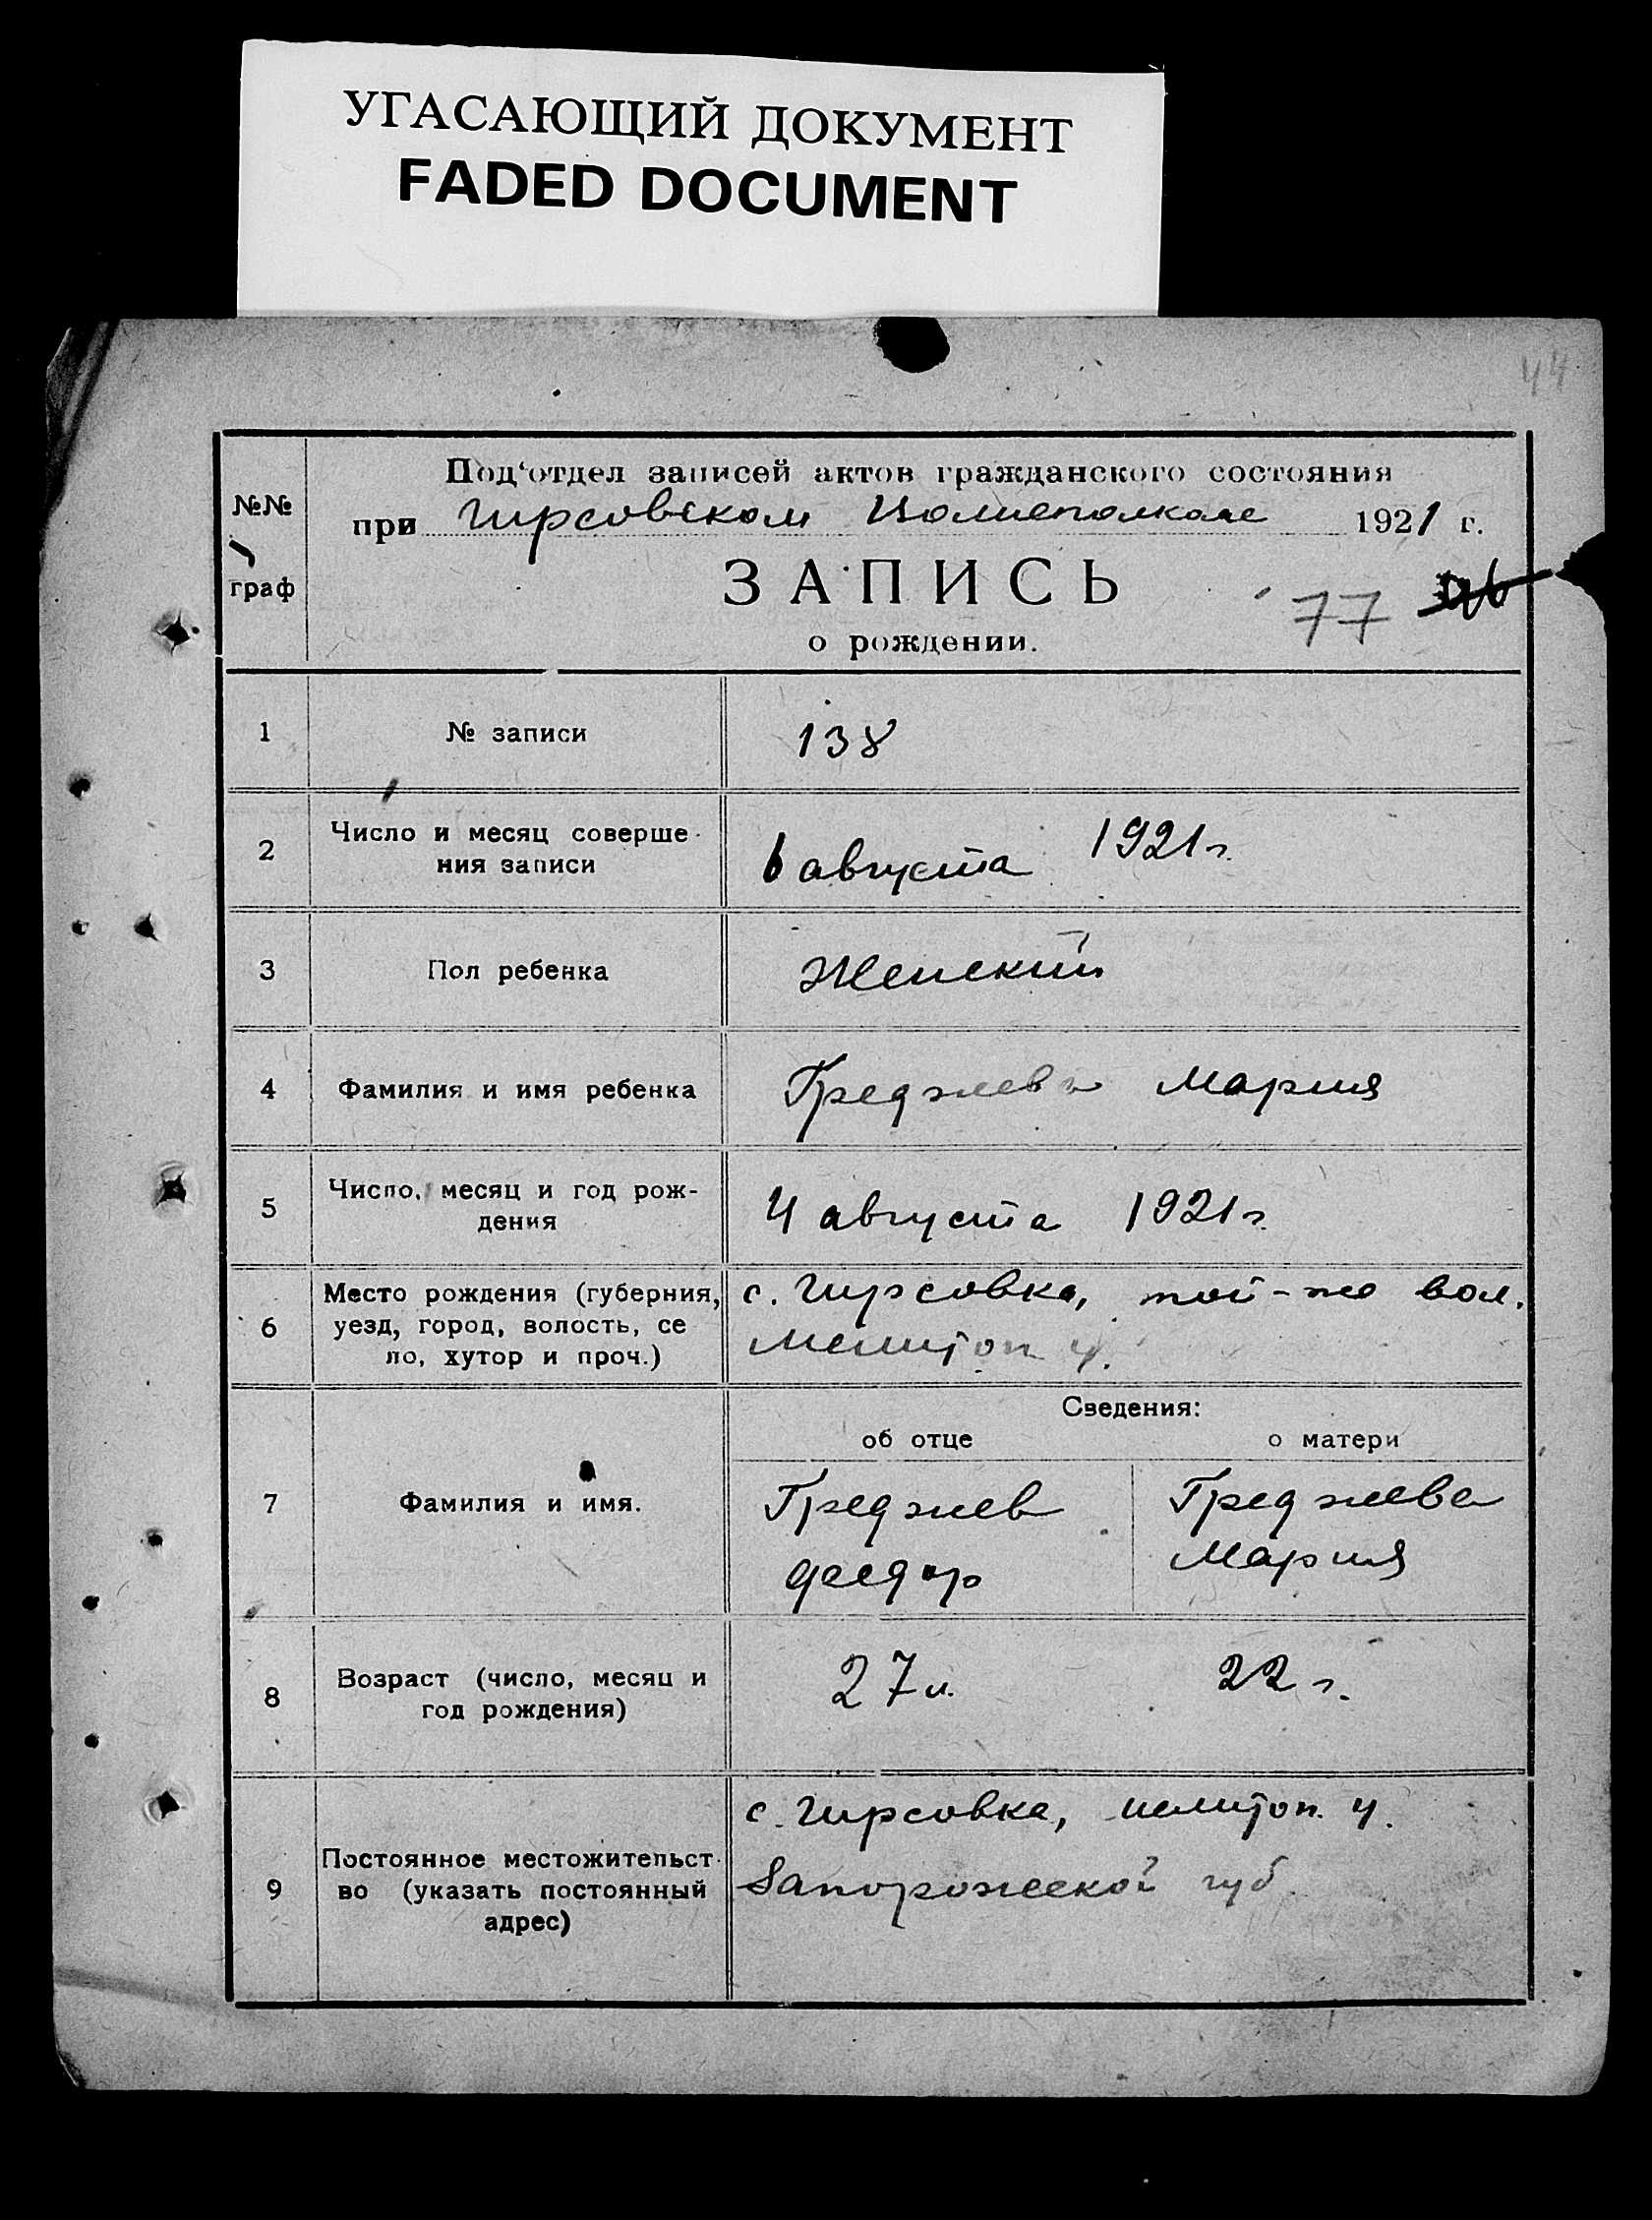 УГАСАЮЩИЙ ДОКУМЕНТ
FADED DOCUMENT
44
№№
граф
Под‘отдел записей актов гражданского состояния
при Гирсовском 1921 г.
ЗАПИСЬ
77
о рождении.
1 № записи 138
2 Число и месяц соверше-
ния записи 6 августа 1921 г.
3 Пол ребенка Женский
4 Фамилия и имя ребенка Греджева Мария
5 Число, месяц и год рож-
дения 4 августа 1921 г.
6 Место рождения (губерния,
уезд, город, волость, се
ло, хутор и проч.) с. Гирсовка, той-же вол.
Мелитоп. у.
Сведения:
об отце о матери
7 Фамилия и имя. Греджев Греджева
Федор Мария
8 Возраст (число, месяц и
год рождения) 27 л. 22 г.
9 Постоянное местожительст-
во (указать постоянный
адрес) с. Гирсовка, мелитоп. у.
Запорожской губ.